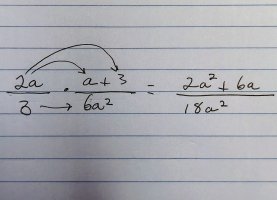 2a/3 · (a + 3)/6a² = (2a² + 6a)/18a²